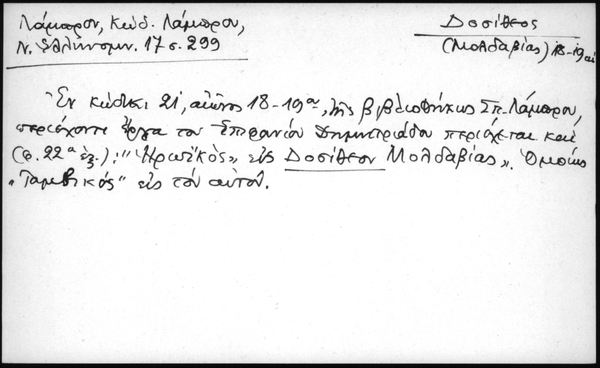 Λάμπρου, Κώδ. Λάμπρου,
Ν. Ἑλληνομν. 17 σ. 299
Δοσίθεος
(Μολδαβίας) 18-19 αἰ
Ἐν κώδικι 21, αἰῶνος 18-19ου, τῆς βιβλιοθήκης Σπ. Λάμπρου,
περιέχοντι ἔργα τοῦ Ἐπιφανίου Δημητριάδου περιέχεται καὶ
(φ. 22α ἑξ.): "Ἡρωϊκὸς" εἰς Δοσίθεον Μολδαβίας". Ὁμοίως
"Ἰαμβικός" εἰς τὸν αὐτόν.